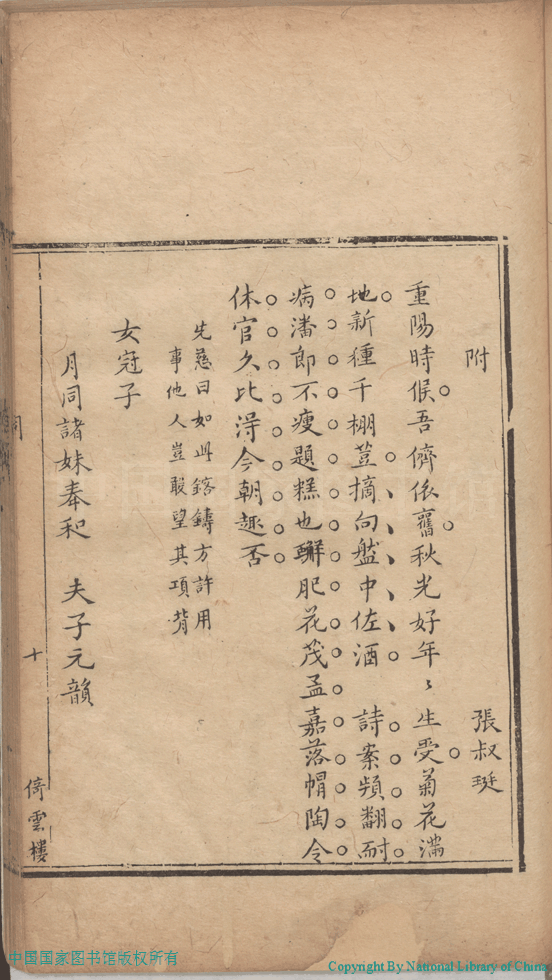 附　張叔珽
重陽時候吾儕依舊秋光好年〻生受菊花滿
地新種千棚荳摘向盤中佐酒　詩案頻翻耐
病潘郎不瘦題糕也擗肥花茂孟嘉落帽陶令
休官久比淂今朝趣否
先慈曰如此鎔鑄方許用
事他人豈敢望其項背
女冠子
月同諸妹奉和　夫子元韻
詞
十
倚雲樓
中国国家图书馆版权所有
Copyright By National Library of China